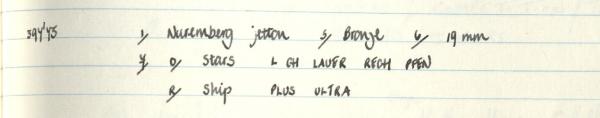 394'45 1/ Nuremberg jetton 5/ Bronze 6/ 19 mm
7/ O/ Stars L GH LAUER RECH PFEN
R/ Ship PLUS ULTRA